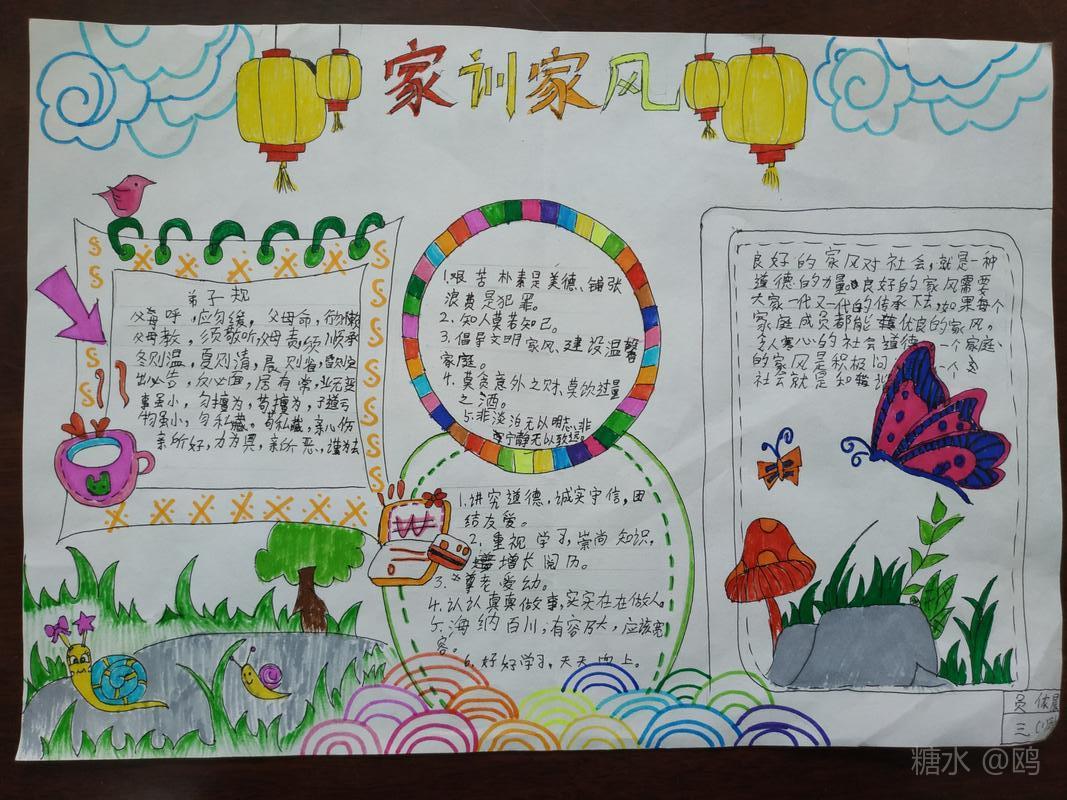 家训家风
弟子规
父母呼,应勿缓,父母命,行勿懒
父母教,须敬听,父母责,须顺承
冬则温,夏则清,晨则省,昏则定
出必告,反必面,居有常,业无变
事虽小,勿擅为,苟擅为,子道亏
物虽小,勿私藏,苟私藏,亲心伤
亲所好,力为具,亲所恶,谨为去
1.艰苦朴素是美德、铺张
浪费是犯罪。
2.知人莫若知己。
3.倡导文明家风、建设温馨
家庭。
4.莫贪意外之财、莫饮过量
之酒。
5.非淡泊无以明志、非
宁静无以致远。
1.讲究道德,诚实守信,团
结友爱。
2.重视学习,崇尚知识,
增长阅历。
3.尊老爱幼。
4.认认真真做事,实实在在做人。
5.海纳百川,有容乃大,应该宽
容。
6.好好学习,天天向上。
良好的家风对社会,就是一种
道德的力量。良好的家风需要
大家一代又一代的传承下去,如果每个
家庭成员都能优良的家风。
令人寒心的社会道德 一个家庭、
的家风是积极向 一个
社会就是和
员
三
糖水 @鸥